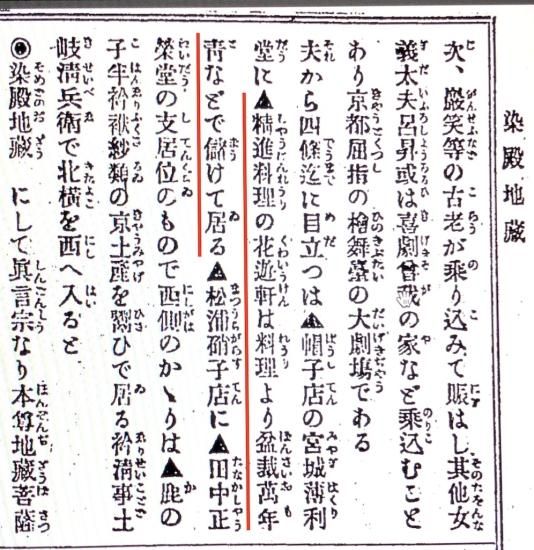 染殿地藏
次、嚴笑等の古老が乘り込みて賑はし其他女
義太夫呂昇或は喜劇曾我の家など乘込むこと
あり京都屈指の檜舞臺の大劇塲である
夫から四條迄に目立つは▲帽子店の宮城薄利
堂に▲精進料理の花遊軒は料理より盆栽萬年
靑などで儲けて居る▲松浦硝子店に▲田中正
榮堂の支居位のもので西側のかゝりは▲鹿の
子半衿袱紗類の京土產を鬻ひで居る衿淸事土
岐淸兵衛で北橫を西へ入ると
◉染殿地藏 にして眞言宗なり本尊地藏菩薩